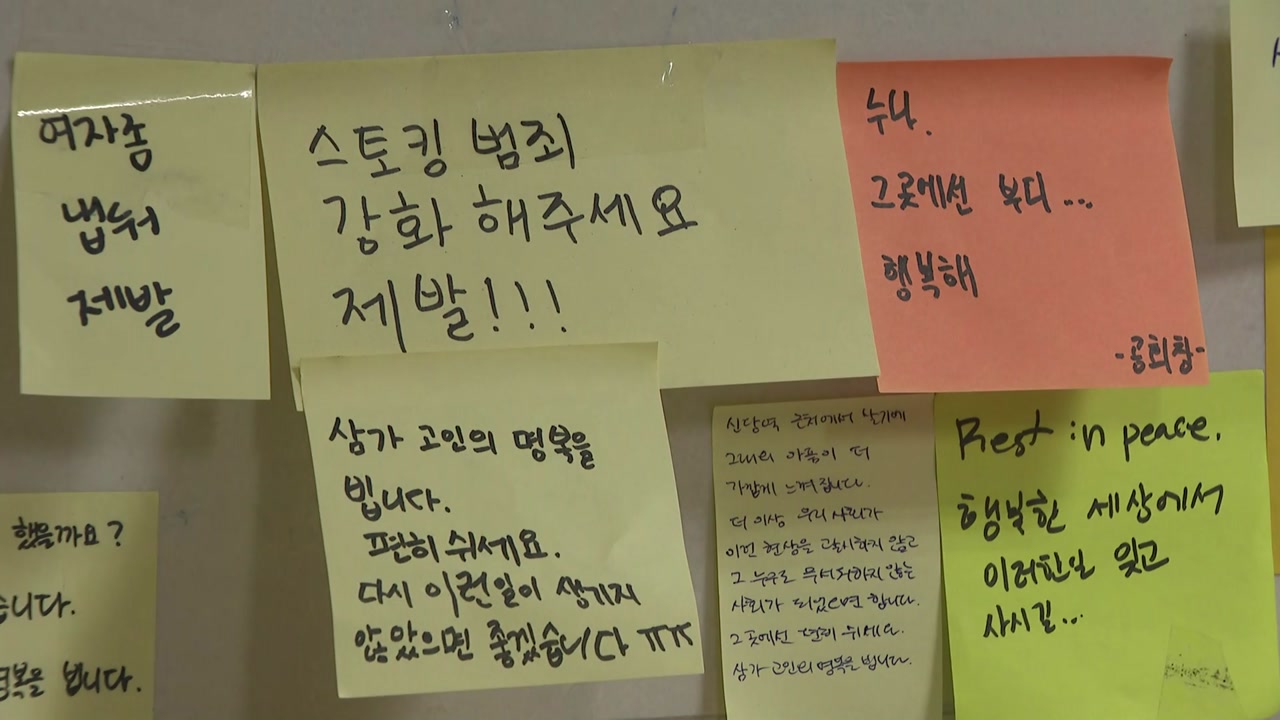 여자좀
냅둬
제발
스토킹 범죄
강화 해주세요
제발!!!
누나.
그곳에선 부디...
행복해
-공희창-
했을까요?
습니다.
명복을 빕니다.
삼가 고인의 명복을
빕니다.
편히 쉬세요.
다시 이런일이 생기지
않았으면 좋겠습니다 ㅠㅠ
신당역 근처에서 살기에
그대의 아픔이 더
가깝게 느껴집니다.
더 이상 우리 사회가
이런 현상을 괄시하지 않고
그 누구도 무서워하지 않는
사회가 되었으면 합니다.
그곳에선 편히 쉬세요.
삼가 고인의 명복을 빕니다.
Rest in peace.
행복한 세상에서
이러한일 잊고
사시길...